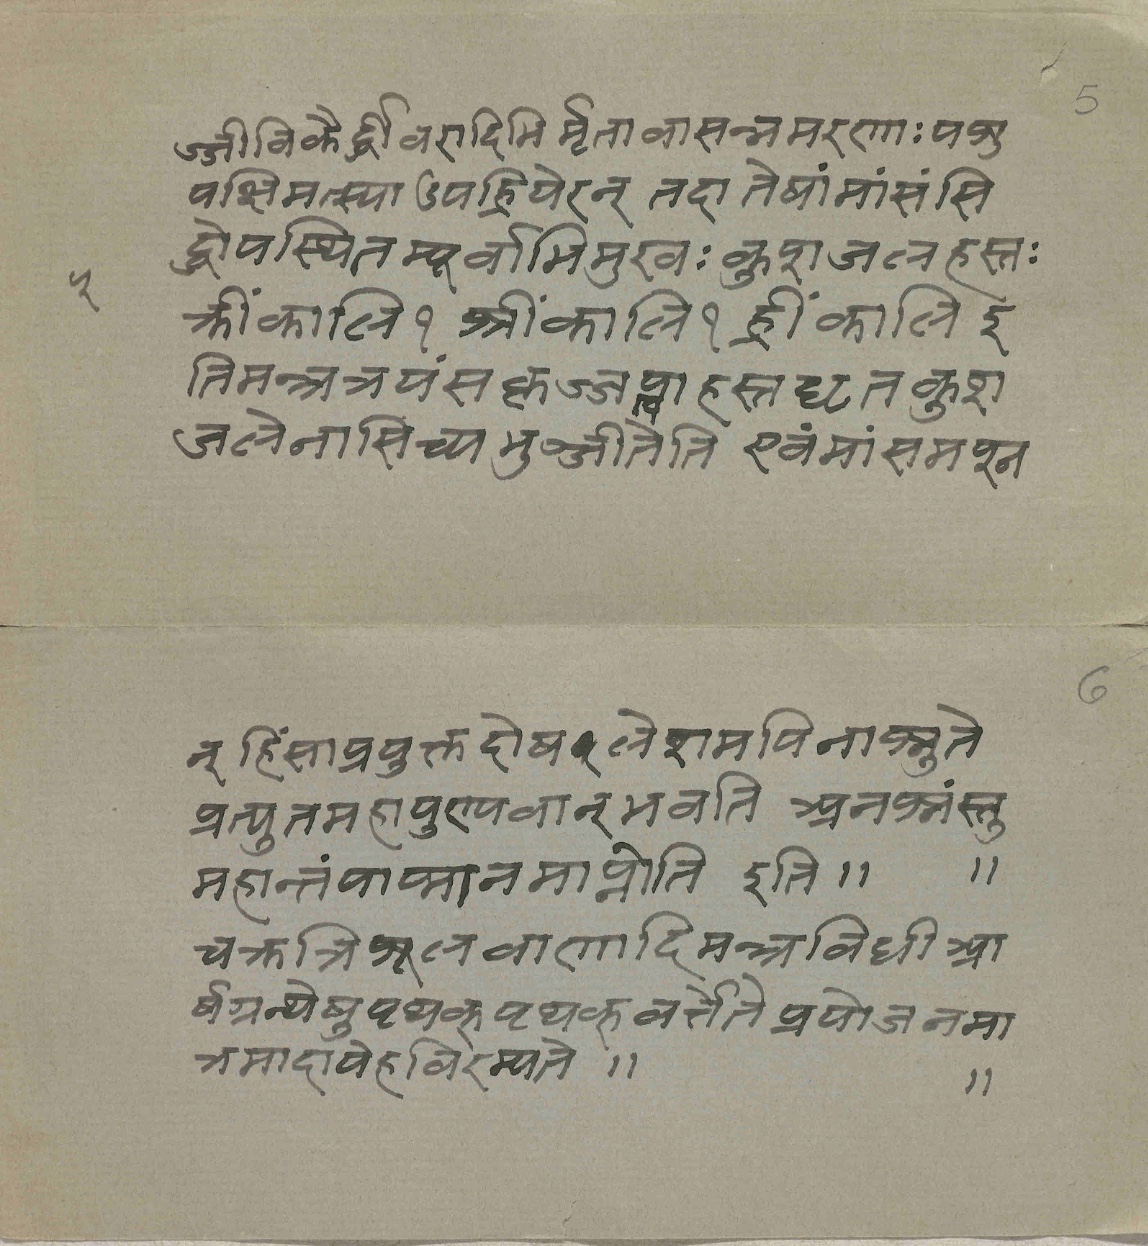 5
ज्जीविकैर्द्धीवरादिभिर्मृतावासन्नमरणाः पशु
पक्षिमत्स्या उपह्रियेरन् तदा तेषां मांसं सि
द्धोपस्थितम्पूर्वाभिमुखः कुशजलहस्तः
५
क्रीं कालि १ श्रीं कालि १ ह्रीं कालि इ
तिमन्त्रत्रयं सकृज्जप्त्वा हस्तधृतकुश
जलेनासिच्य भुञ्जीतेति एवं मांसमश्न
6
न् हिंसाप्रयुक्तदोषलेशमपि नाश्नुते
प्रत्युत महापुण्यवान् भवति अनश्नंस्तु
महान्तं पाप्मानमाप्नोति इति ॥ ॥
चक्रत्रिशूलबाणादिमन्त्रविधी आ
र्षग्रन्थेषु पृथक् पृथक् वर्त्तेते प्रयोजनमा
त्रमादायेह विरम्यते ॥
॥